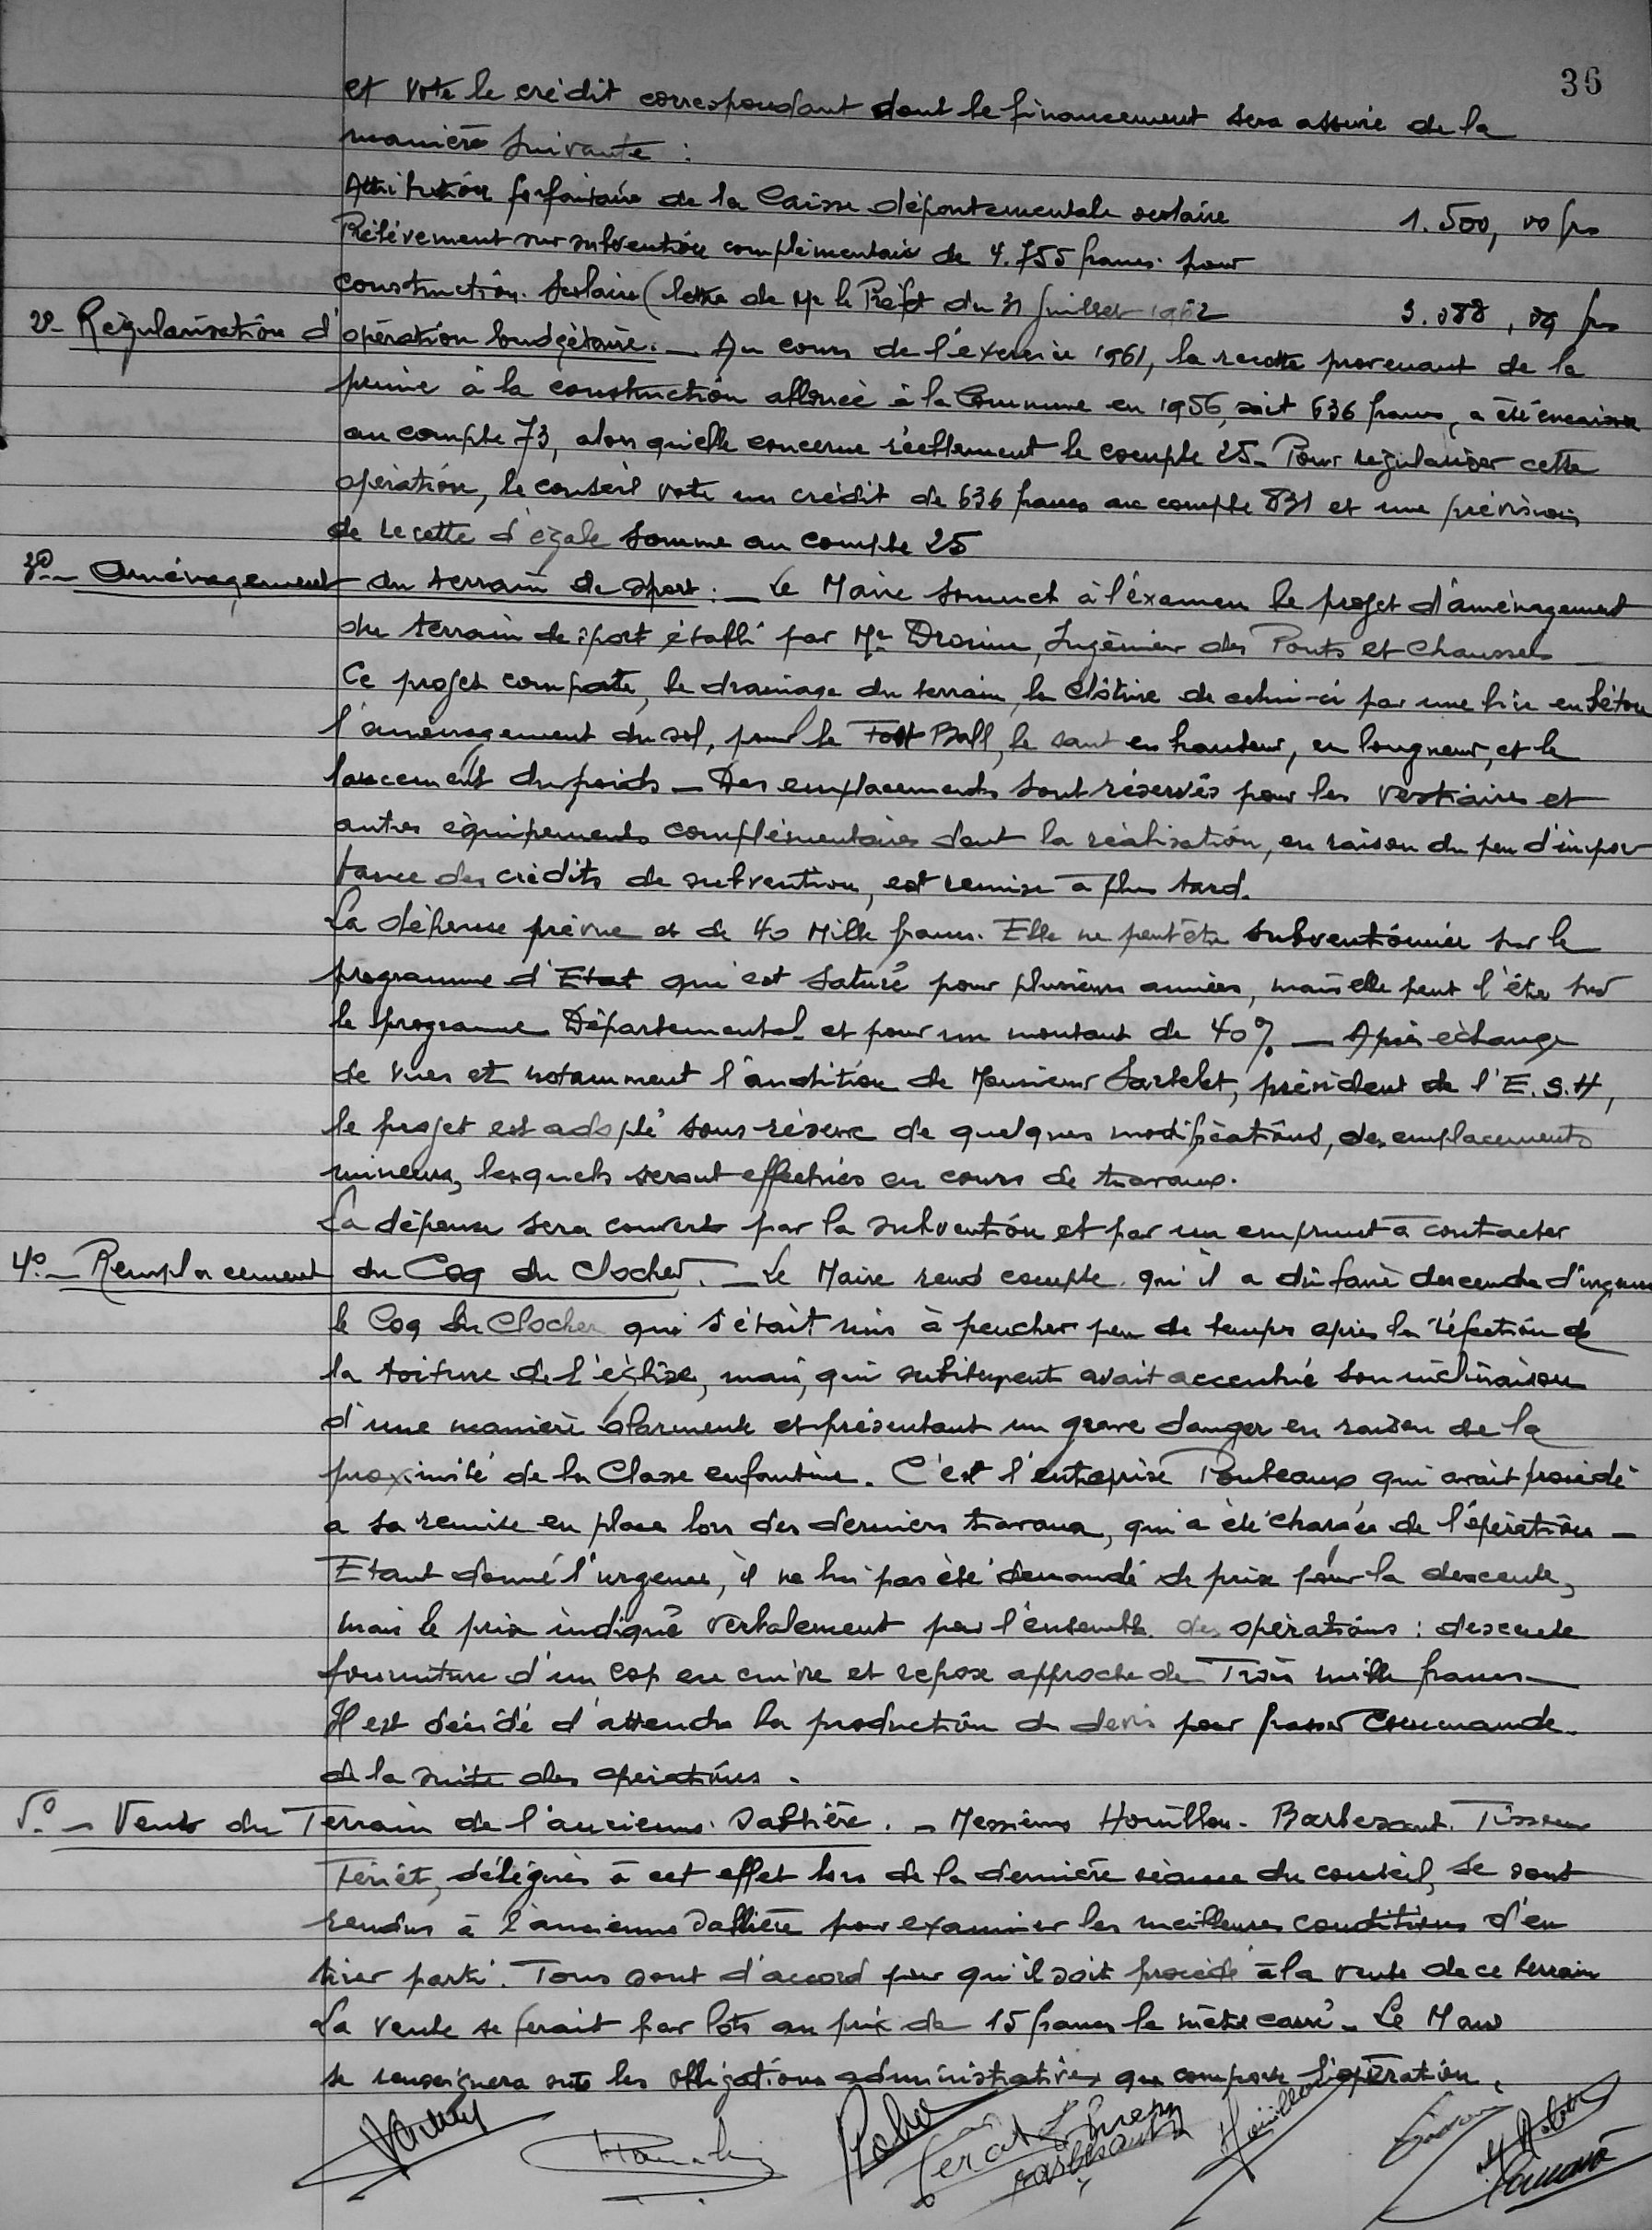 36
et vote le crédit correspondant dont le financement sera assuré de la
manière suivante :
Attribution forfaitaire de la Caisse départementale scolaire 1.500,00 frs
Prélèvement sur subvention complémentaire de 4.755 francs pour
construction scolaire (lettre de Mr le Préfet du 31 Juillet 1962 3.088,09 frs
2º- Régularisation d'opération budgétaire. — Au cours de l'exercice 1961, la recette provenant de la
prime à la construction allouée à la Commune en 1956, soit 636 francs, a été encaissée
au compte 73, alors qu'elle concerne réellement le compte 25 - Pour régulariser cette
opération, le conseil vote un crédit de 636 francs au compte 831 et une prévision
de recette d'égale somme au compte 25
3º- Aménagement du terrain de sport : — Le Maire soumet à l'examen le projet d'aménagement
du terrain de sport établi par Mr Ingénieur des Ponts et Chaussées
Ce projet comporte, le drainage du terrain, la clôture de celui-ci par une lice en béton
l'aménagement du sol, pour le Foot Ball, le saut en hauteur, en longueur, et le
lancement du poids — Des emplacements sont réservés pour les vestiaires et
autres équipements complémentaires dont la réalisation, en raison du peu d'impor
tance des crédits de subvention, est remise à plus tard.
La dépense prévue est de 40 Mille francs. Elle ne peut être subventionnée sur le
programme d'Etat qui est saturé pour plusieurs années, mais elle peut l'être sur
le programme Départemental et pour un montant de 40% — Après échange
de vues et notamment l'audition de Monsieur Sartelet, président de l'E.S.H,
le projet est adopté sous réserve de quelques modifications, des emplacements
mineurs, lesquels seront effectués en cours de travaux.
La dépense sera couverte par la subvention et par un emprunt à contracter
4º- Remplacement du Coq du Clocher. — Le Maire rend compte qu'il a dû faire descendre d'urgence
le Coq du Clocher qui s'était mis à pencher peu de temps après la réfection de
la toiture de l'église, mais, qui subitement avait accentué son inclinaison
d'une manière alarmente et présentant un grave danger en raison de la
proximité de la Classe enfantine. C'est l'entreprise Ponteaux qui avait procédé
a sa remise en place lors des derniers travaux, qui a été chargée de l'opération —
Etant donné l'urgence, il ne lui pas été demandé de prix pour la descente,
mais le prix indiqué verbalement pour l'ensemble des opérations : descente
fourniture d'un coq en cuivre et repose approche de Trois mille francs —
Il est décidé d'attendre la production du devis pour passer Commande
de la suite des opérations.
5º- Vente du Terrain de l'ancienne Sablière. — Messieurs Houillon - Barbezant. Tisseur
délégués à cet effet lors de la dernière séance du conseil, se sont
rendus à l'ancienne Sablière pour examiner les meilleures conditions d'en
tirer parti. Tous sont d'accord pour qu'il soit procédé à la vente de ce terrain
La vente se ferait par lots au prix de 15 francs le mètre carré — Le Maire
se renseignera sur les obligations administratives que comporte l'opération.